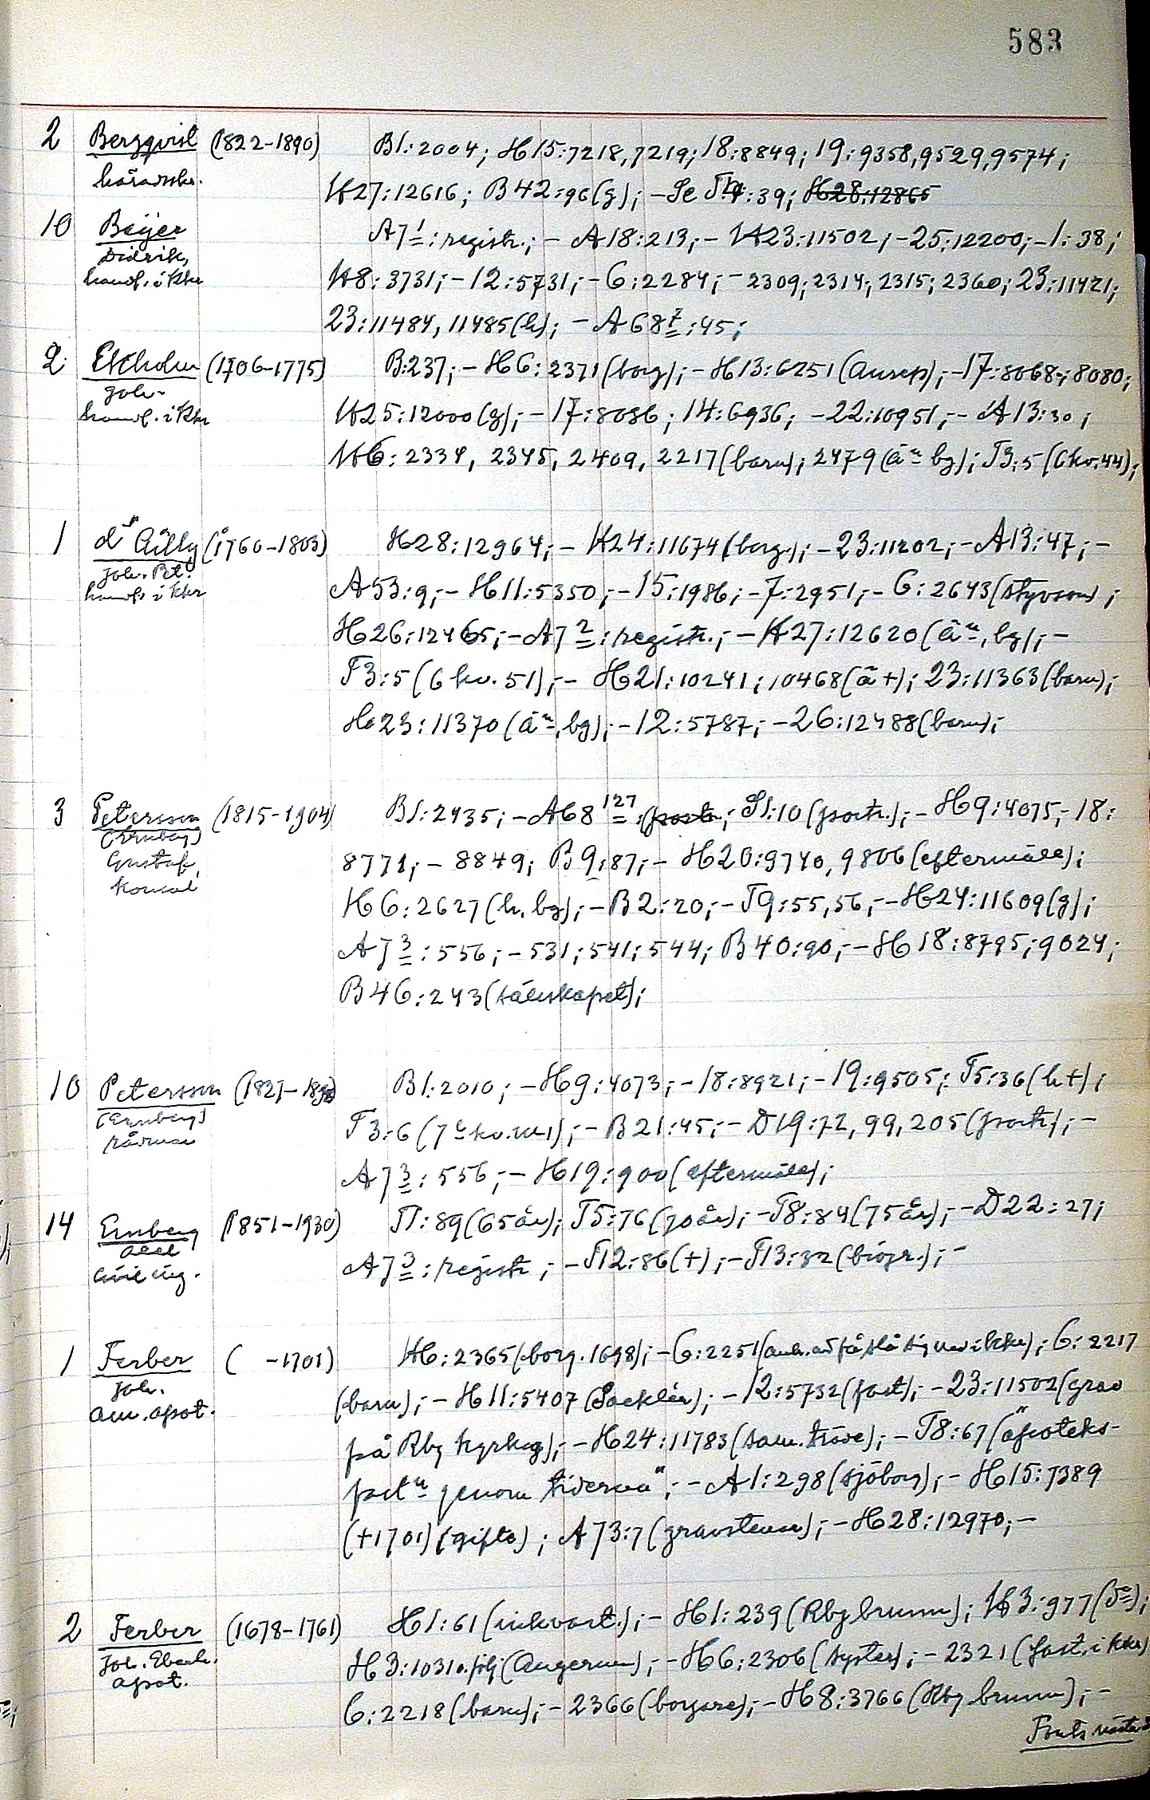 583
2 Bergqvist (1822-1890) B1:2004; H15:7218,7219; 18:8849; 19:9358,9529,9574;
häradshr. H27:12616; B42:96(g); - Se T4:39; H28:12865
10 Beijer A7¹:registr.; - A18:213; - H23:11502; -25:12200; -1:38;
Didrik,
handl. i Kkr H8:3731; -12:5731; -6:2284; -2309; 2314; 2315; 2360; 23:11421;
23:11484, 11485(h); - A68⁷:45;
2 Ekholm (1706-1775) B:237; - H6:2371(borg); - H13:6251; -17:8068; 8080;
Joh.
handl. i Kkr H25:12000(g); -17:8086; 14:6936; -22:10951; - A13:30;
H6:2334, 2345, 2409, 2217(barn); 2479(äⁿ bg); T3:5(6 kv. 44);
1 d'Ailly (1760-1803) H28:12964; - H24:11674(borg); -23:11202; - A13:47; -
Joh. Pet.
handl. i Kkr A53:9; - H11:5350; -15:1986; -7:2951; -6:2643(styvson);
H26:12465; - A7²:registr.; - H27:12620(äⁿ, bg); -
T3:5(6 kv. 51); - H21:10241; 10468(ä+); 23:11363(barn);
H23:11370(äⁿ, bg); -12:5787; -26:12488(barn);
3 Petersson (1815-1904) B1:2435; - A68¹²⁷:(portr; S1:10(portr.); - H9:4075; -18:
(Ernberg)
Gustaf, 8771; - 8849; B9:87; - H20:9740, 9806(eftermäle);
konsul
H6:2627(h, bg); - B2:20; - T9:55,56; - H24:11609(g);
A7³:556; -531; 541; 544; B40:90; - H18:8795; 9024;
B46:243(sällskapet);
10 Petersson B1:2010; - H9:4073; -18:8921; -19:9505; T5:36(h+);
(Ernberg)
rådman T3:6; - B21:45; - D19:72, 99, 205(portr); -
A7³:556; - H19:900(eftermäle);
14 Ernberg (1851-1930) T1:89(65 år); T5:76(70 år); - T8:84(75 år); - D22:27;
Axel
civil ing. A7³:registr; - T12:86(+); - T13:32(biogr.); -
1 Ferber ( -1701) H6:2365(borg. 1698); -6:2251; 6:2217
Joh.
am. apot. (barn); - H11:5407; -12:5732(fast); -23:11502(grav
på Rby kyrkog); - H24:11783; - T8:67("apoteks-
fastⁿ genom tiderna"; - A1:298(sjöborg); - H15:7389
(+1701)(gifte); A73:7(gravstenen); - H28:12970; -
2 Ferber (1678-1761) H1:61(inkvart.); - H1:239(Rby brunn); H3:977(Dº);
Joh. Eberh.
apot. H3:1031 o. följ(Angerum); - H6:2306(syster); -2321(fast. i Kkr)
6:2218(barn); -2366(borgare); - H8:3766(Rby brunn); -
Forts. nästa